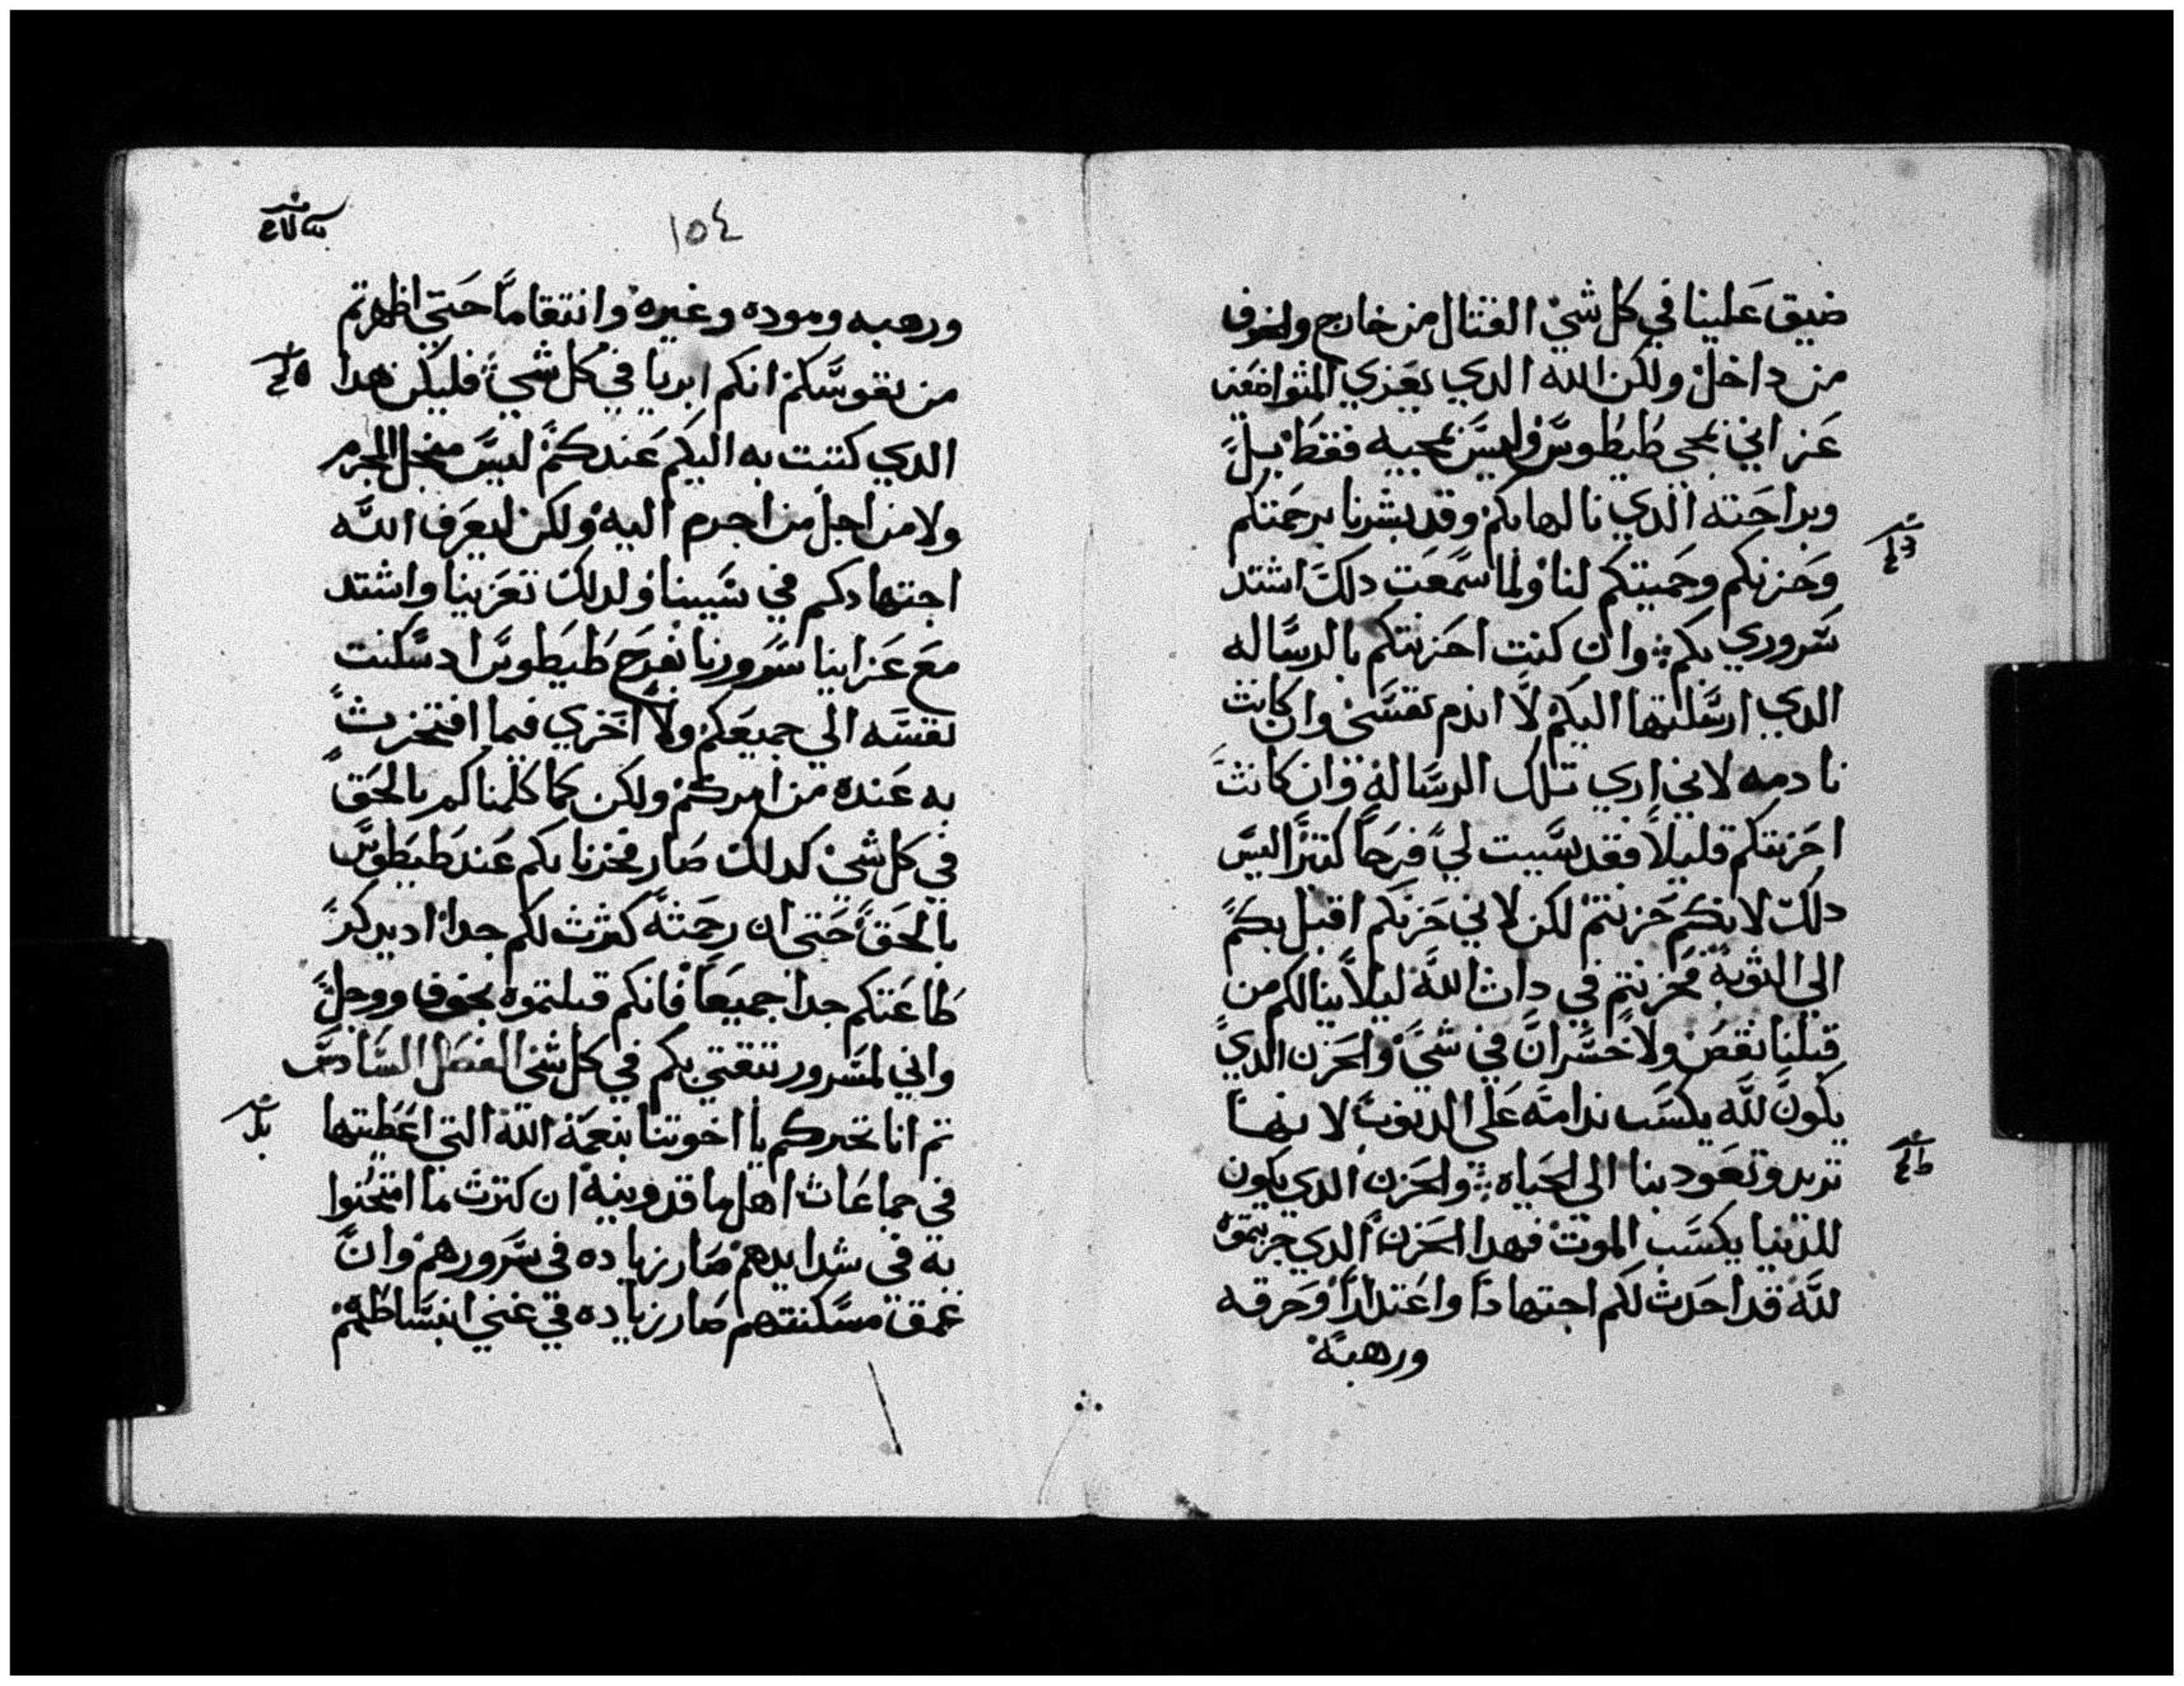 ضيق علينا في كل شي القتال من خارج والخوف
من داخل ولكن الله الدي يعزي المتواضعين
عزاني بمجي طيطوس وليس بمجيه فقط بل
وبراحته الدي نالها بكم وقد بشرنا برحمتكم
وحزنكم وحميتكم لنا ولما سمعت دلك اشتد
سروري بكم وان كنت احزنتكم بالرساله
الدي ارسلتها اليكم لا اندم نفسي وان كانت
نادمه لاني اري تلك الرساله وان كانت
احزنتكم قليلا فقد سببت لي فرحا كتيرا ليس
دلك لانكم حزنتم لكن لاني حزنكم اقبل بكم
الي التوبة فحزنتم في دات الله ليلا ينالكم من
قبلنا نقص ولا خسران في شي والحزن الدي
يكون لله يكسب ندامته على الدنوب لا نها
تريد وتعود بنا الى الحياه والحزن الدي يكون
للدنيا يكسب الموت فهدا الحزن الدي حزنتموه
لله قد احدث لكم اجتهادا واعتدارا وحرقه
ورهبة
١٥٤
ورهبه وموده وغيره وانتقاما حتي اظهرتم
من نفوسكم انكم ابريا في كل شي فليكن هدا
الدي كتبت به اليكم عندكم ليس من اجل المجرم
ولا من اجل من اجرم اليه ولكن ليعرف الله
اجتهادكم في سببنا ولدلك تعزينا واشتد
مع عزاينا سرورنا بفرح طيطوس اد سكنت
نفسه الي جميعكم ولا اخزي فيما افتخرت
به عنده من امركم ولكن كما كلمناكم بالحق
في كل شي كدلك صار فخرنا بكم عند طيطوس
بالحق حتى ان رحمته كثرت لكم جدا اد يدكر
طاعتكم جدا جميعا فانكم قبلتموه بخوف ووجل
واني لمسرور بتقتي بكم في كل شي الفصل السادس
تم انا نخبركم يا اخوتنا بنعمة الله التي اعطيتها
في جماعات اهل ماقدونيه ان كترت ما امتحنوا
به في شدايدهم صار زياده في سرورهم وان
عمق مسكنتهم صار زياده في غني انبساطهم